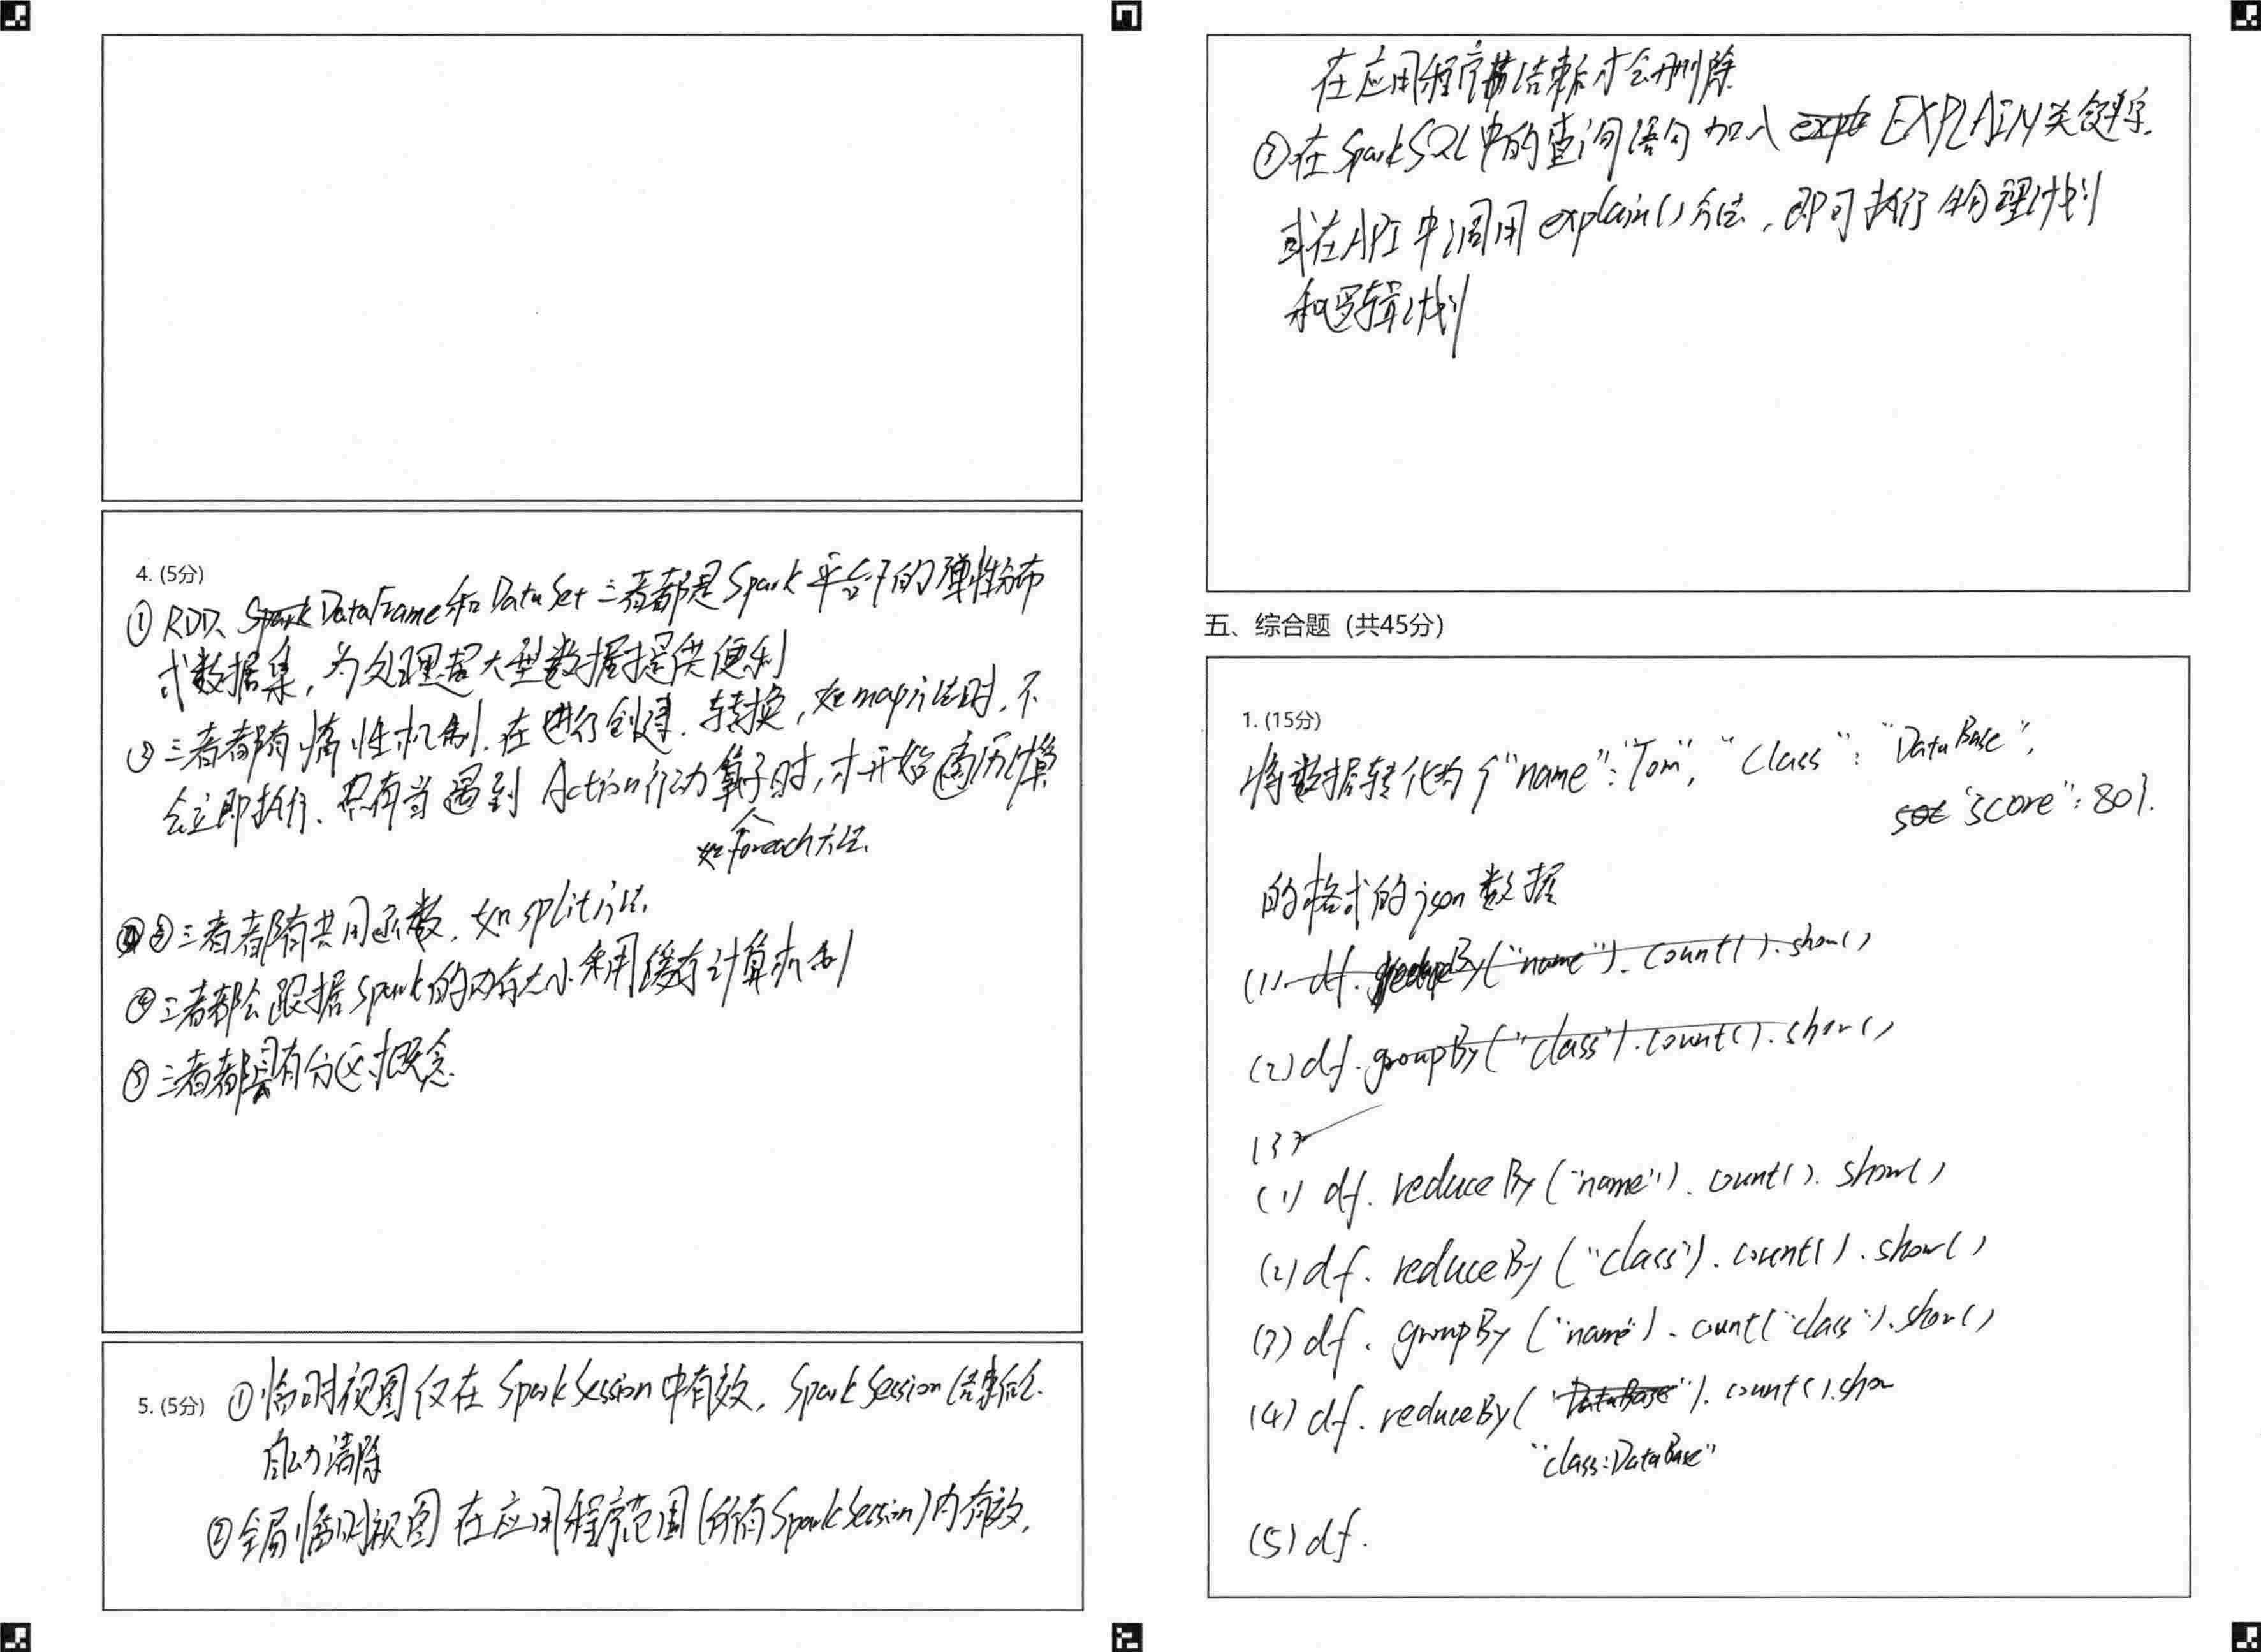 4. (5分)
① RDD、Spark DataFrame和DataSet三者都是Spark平台下的弹性分布
式数据集，为处理超大型数据提供便利
② 三者都有惰性机制.在进行创建.转换，如map方法时，不
会立即执行、只有当遇到 Action行动算子时，才开始遍历计算
如foreach方法.
③三者都有共用函数，如split方法.
④三者都会跟据spark的内存大小采用缓存计算机制
⑤三者都具有分区概念.
5. (5分) ①临时视图仅在SparkSession中有效，SparkSession结束后.
自动清除
②全局临时视图 在应用程序范围(所有SparkSession)内有效，
在应用程序结束后才会删除
③在SparkSQL中的查询语句加入 EXPLAIN关键字.
或在API中调用explain()方法，即可执行物理计划
和逻辑计划
五、综合题（共45分）
1. (15分)
将数据转化为{"name":"Tom","Class":"DataBase",
"score":80}.
的格式的json数据
(1) df.groupBy("name").count().show()
(2) df.groupBy("class").count().show()
(3)
(1) df. reduceBy("name"). count(). show()
(2) df. reduceBy("class"). count(). show()
(3) df. groupBy("name"). count("class").show()
(4) df. reduceBy("DataBase"). count().show
"class:DataBase"
(5) df.